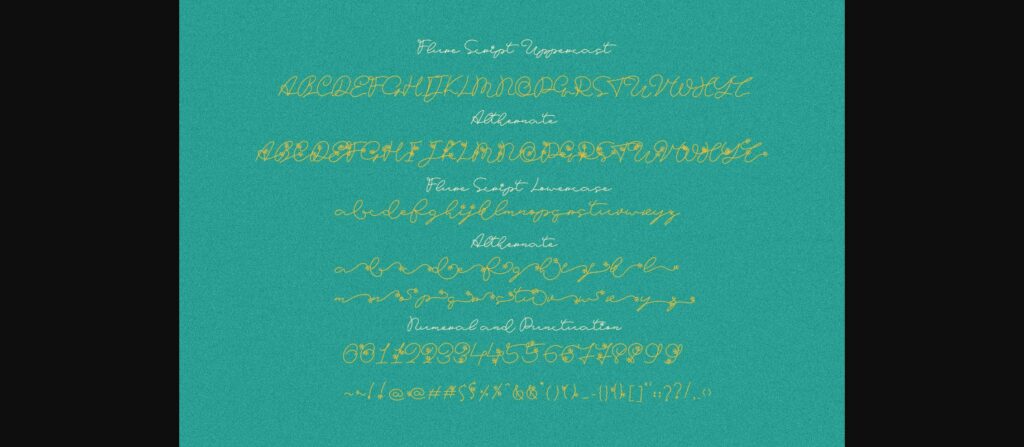 Flure Script Uppercast
ABCDEFGHIJKLMNOPQRSTUVWXYZ
Althernate
ABCDEFGHIJKLMNOPQRSTUVWXYZ
Flure Script Lowercase
abcdefghijklmnopqrstuvwxyz
Althernate
abcdefghijkl
mnopqrstuvwxyz
Numeral and Punctuation
00112233445566778899